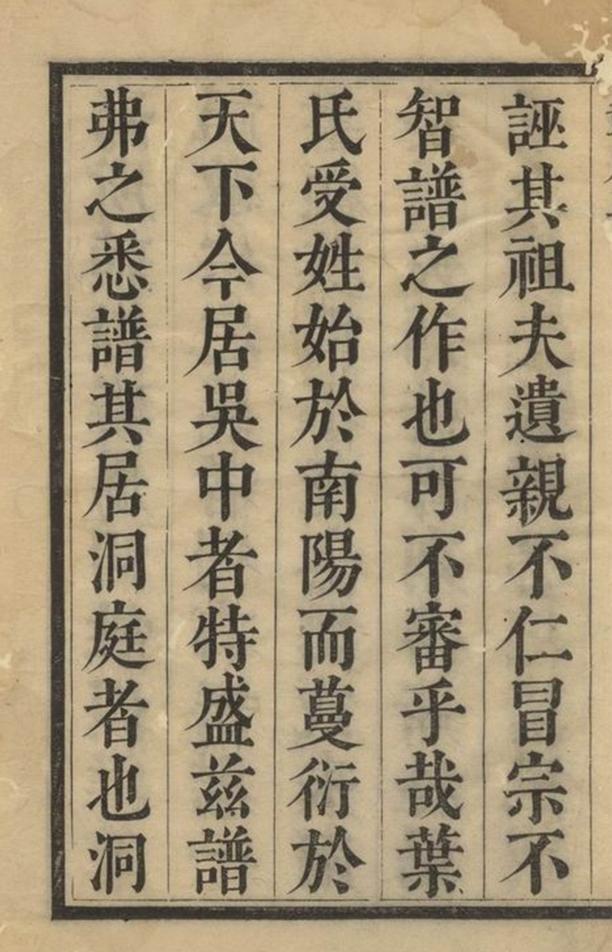 誣其祖夫遺親不仁冒宗不
智譜之作也可不審乎哉葉
氏受姓始於南陽而蔓衍於
天下今居吳中者特盛茲譜
弗之悉譜其居洞庭者也洞